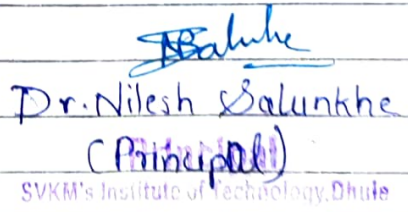 Dr. Nilesh Salunkhe
(Principal)
SVKM's Institute of Technology, Dhule